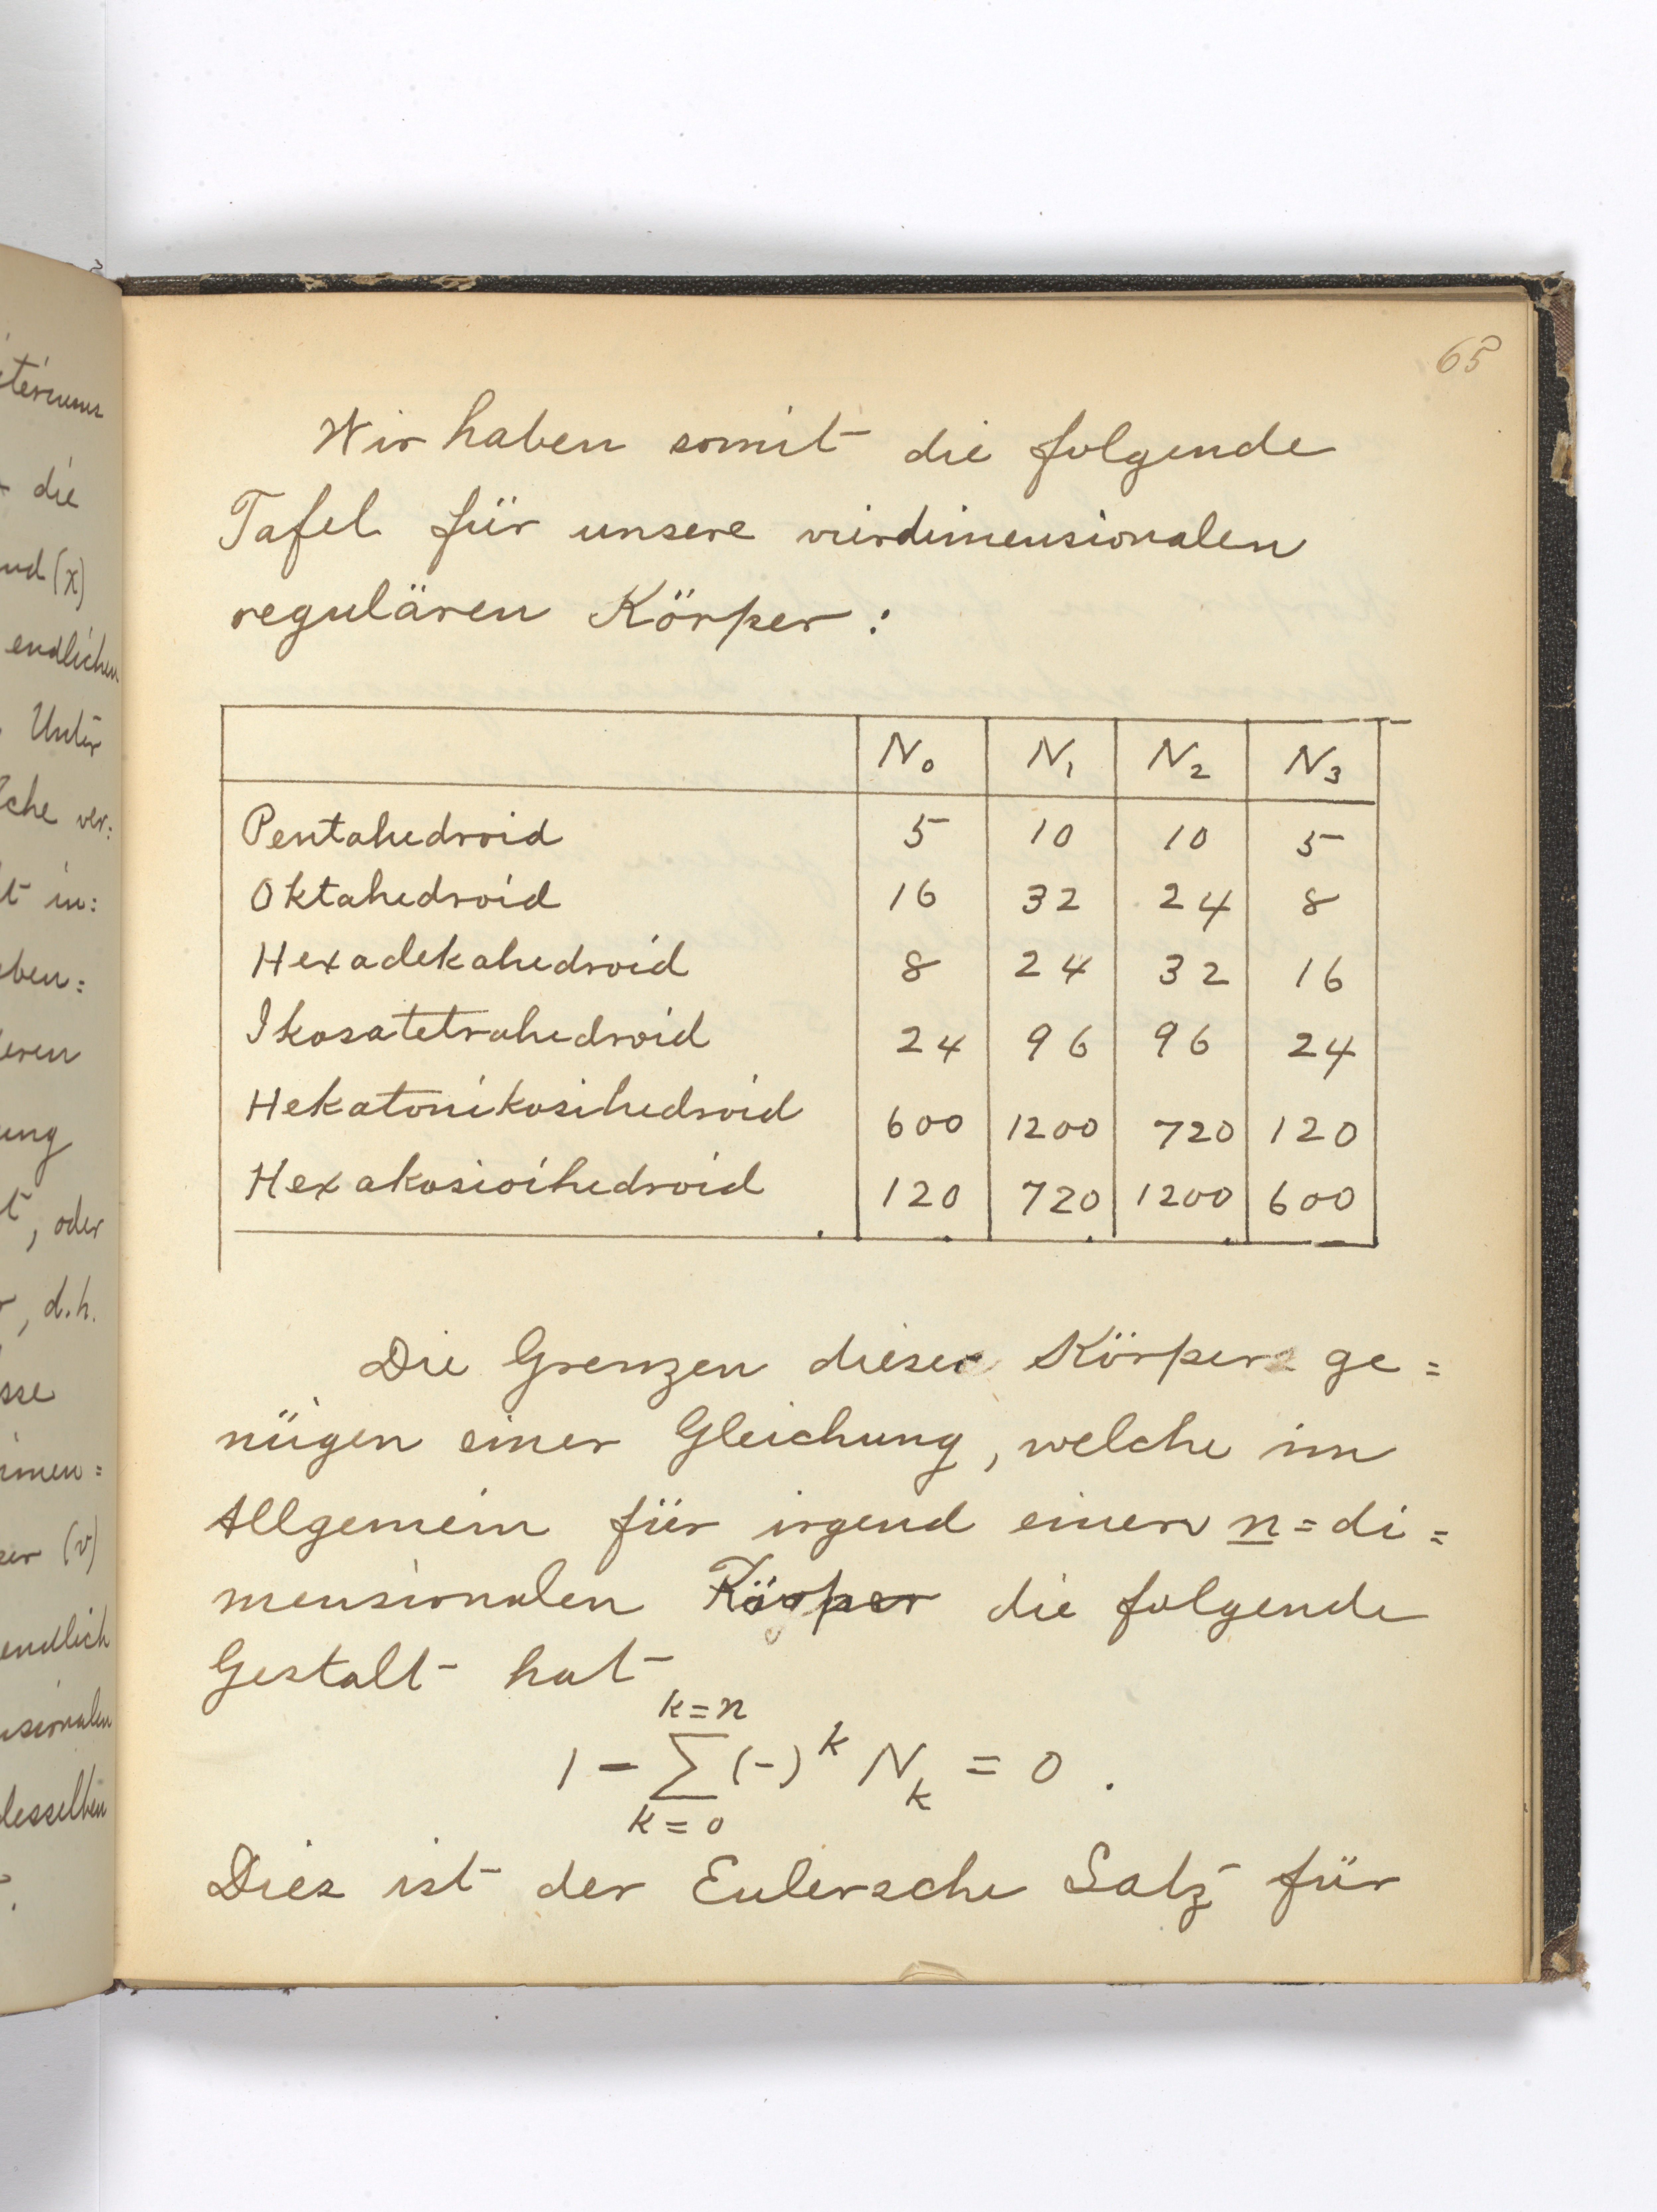 65
Wir haben somit die folgende
Tafel für unsere vierdimensionalen
regulären Körper:
N₀ N₁ N₂ N₃
Pentahedroid 5 10 10 5
Oktahedroid 16 32 24 8
Hexadekahedroid 8 24 32 16
Ikosatetrahedroid 24 96 96 24
Hekatonikosihedroid 600 1200 720 120
Hexakosioihedroid 120 720 1200 600
Die Grenzen dieser Körper ge=
nügen einer Gleichung, welche im
Allgemein für irgend einen n=di=
mensionalen Körper die folgende
Gestalt hat
k=n
1 - ∑ (-)ᵏ Nₖ = 0 .
k=0
Dies ist der Eulersche Satz für
die
endlichen
Unter
ver:
t in:
eben=
ung
, oder
, d.h.
(v)
endlich
desselben